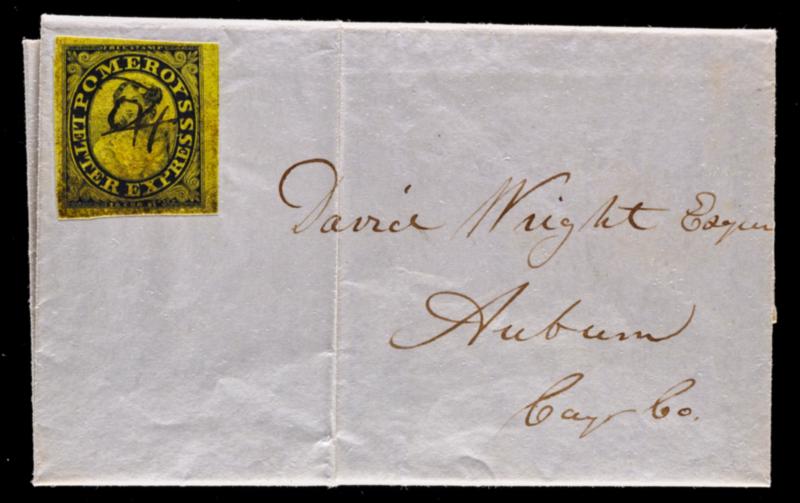 FREE STAMP
POMEROY'S
LETTER EXPRESS
David Wright Esquir
Auburn
Cay Co.